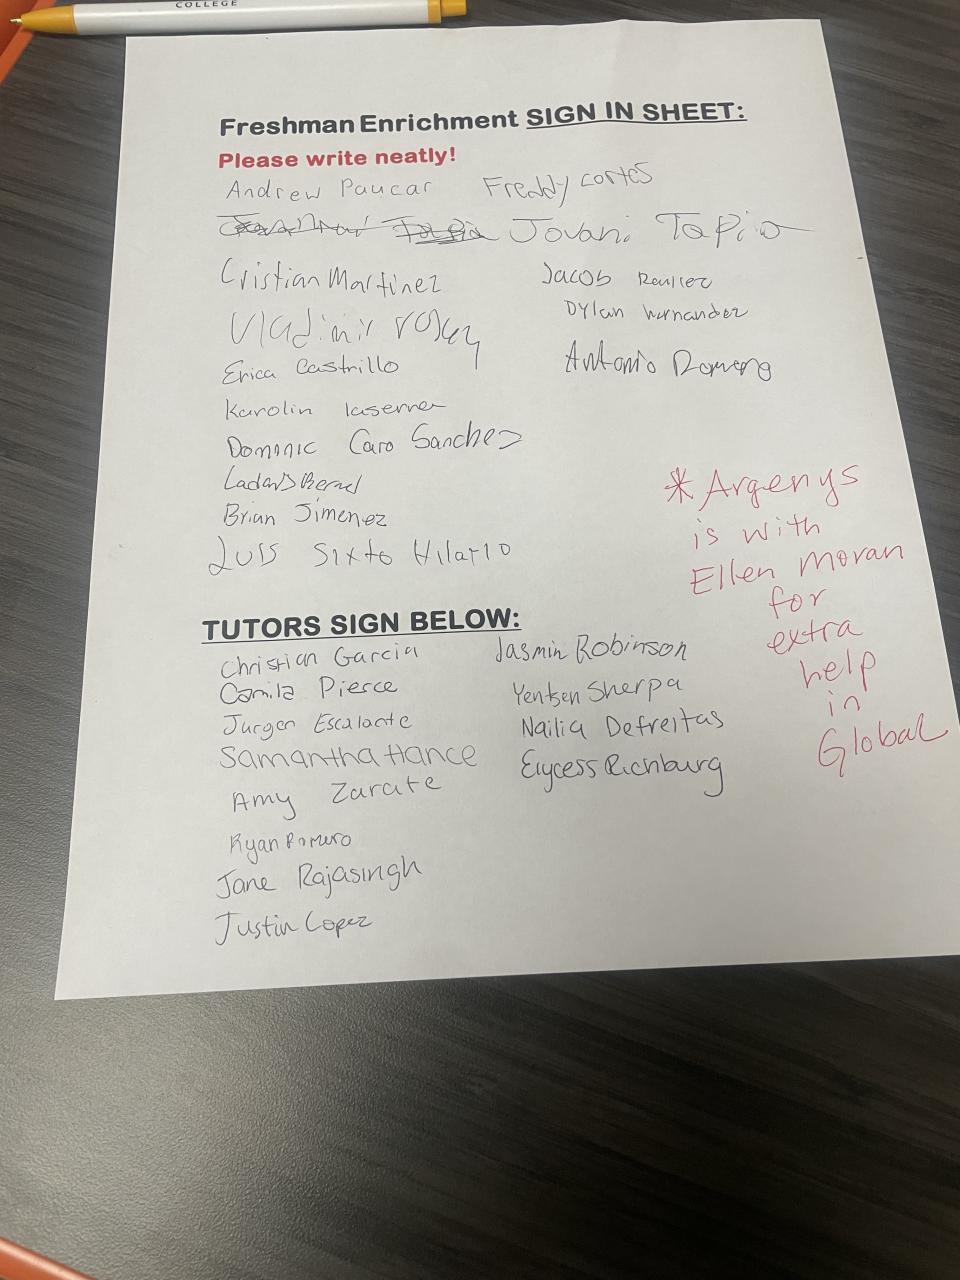 COLLEGE
Freshman Enrichment SIGN IN SHEET:
Please write neatly!
Andrew Paucar Freddy cortes
Jovani Tapia
Cristian Martinez Jacob
Vladimir Dylan hernandez
Erica Castrillo Antonio Romero
Karolin laserner
Dominic Caro Sanchez
Brian Jimenez
Luis Sixto Hilario
* Argenys
is with
Ellen Moran
for
extra
help
in
Global
TUTORS SIGN BELOW:
Christian Garcia Jasmin Robinson
Camila Pierce Yentsen Sherpa
Jurgen Escalante Nailia Defreitas
Samantha Hance Elycess Richburg
Amy Zarate
Ryan Romero
Jane Rajasingh
Justin Lopez